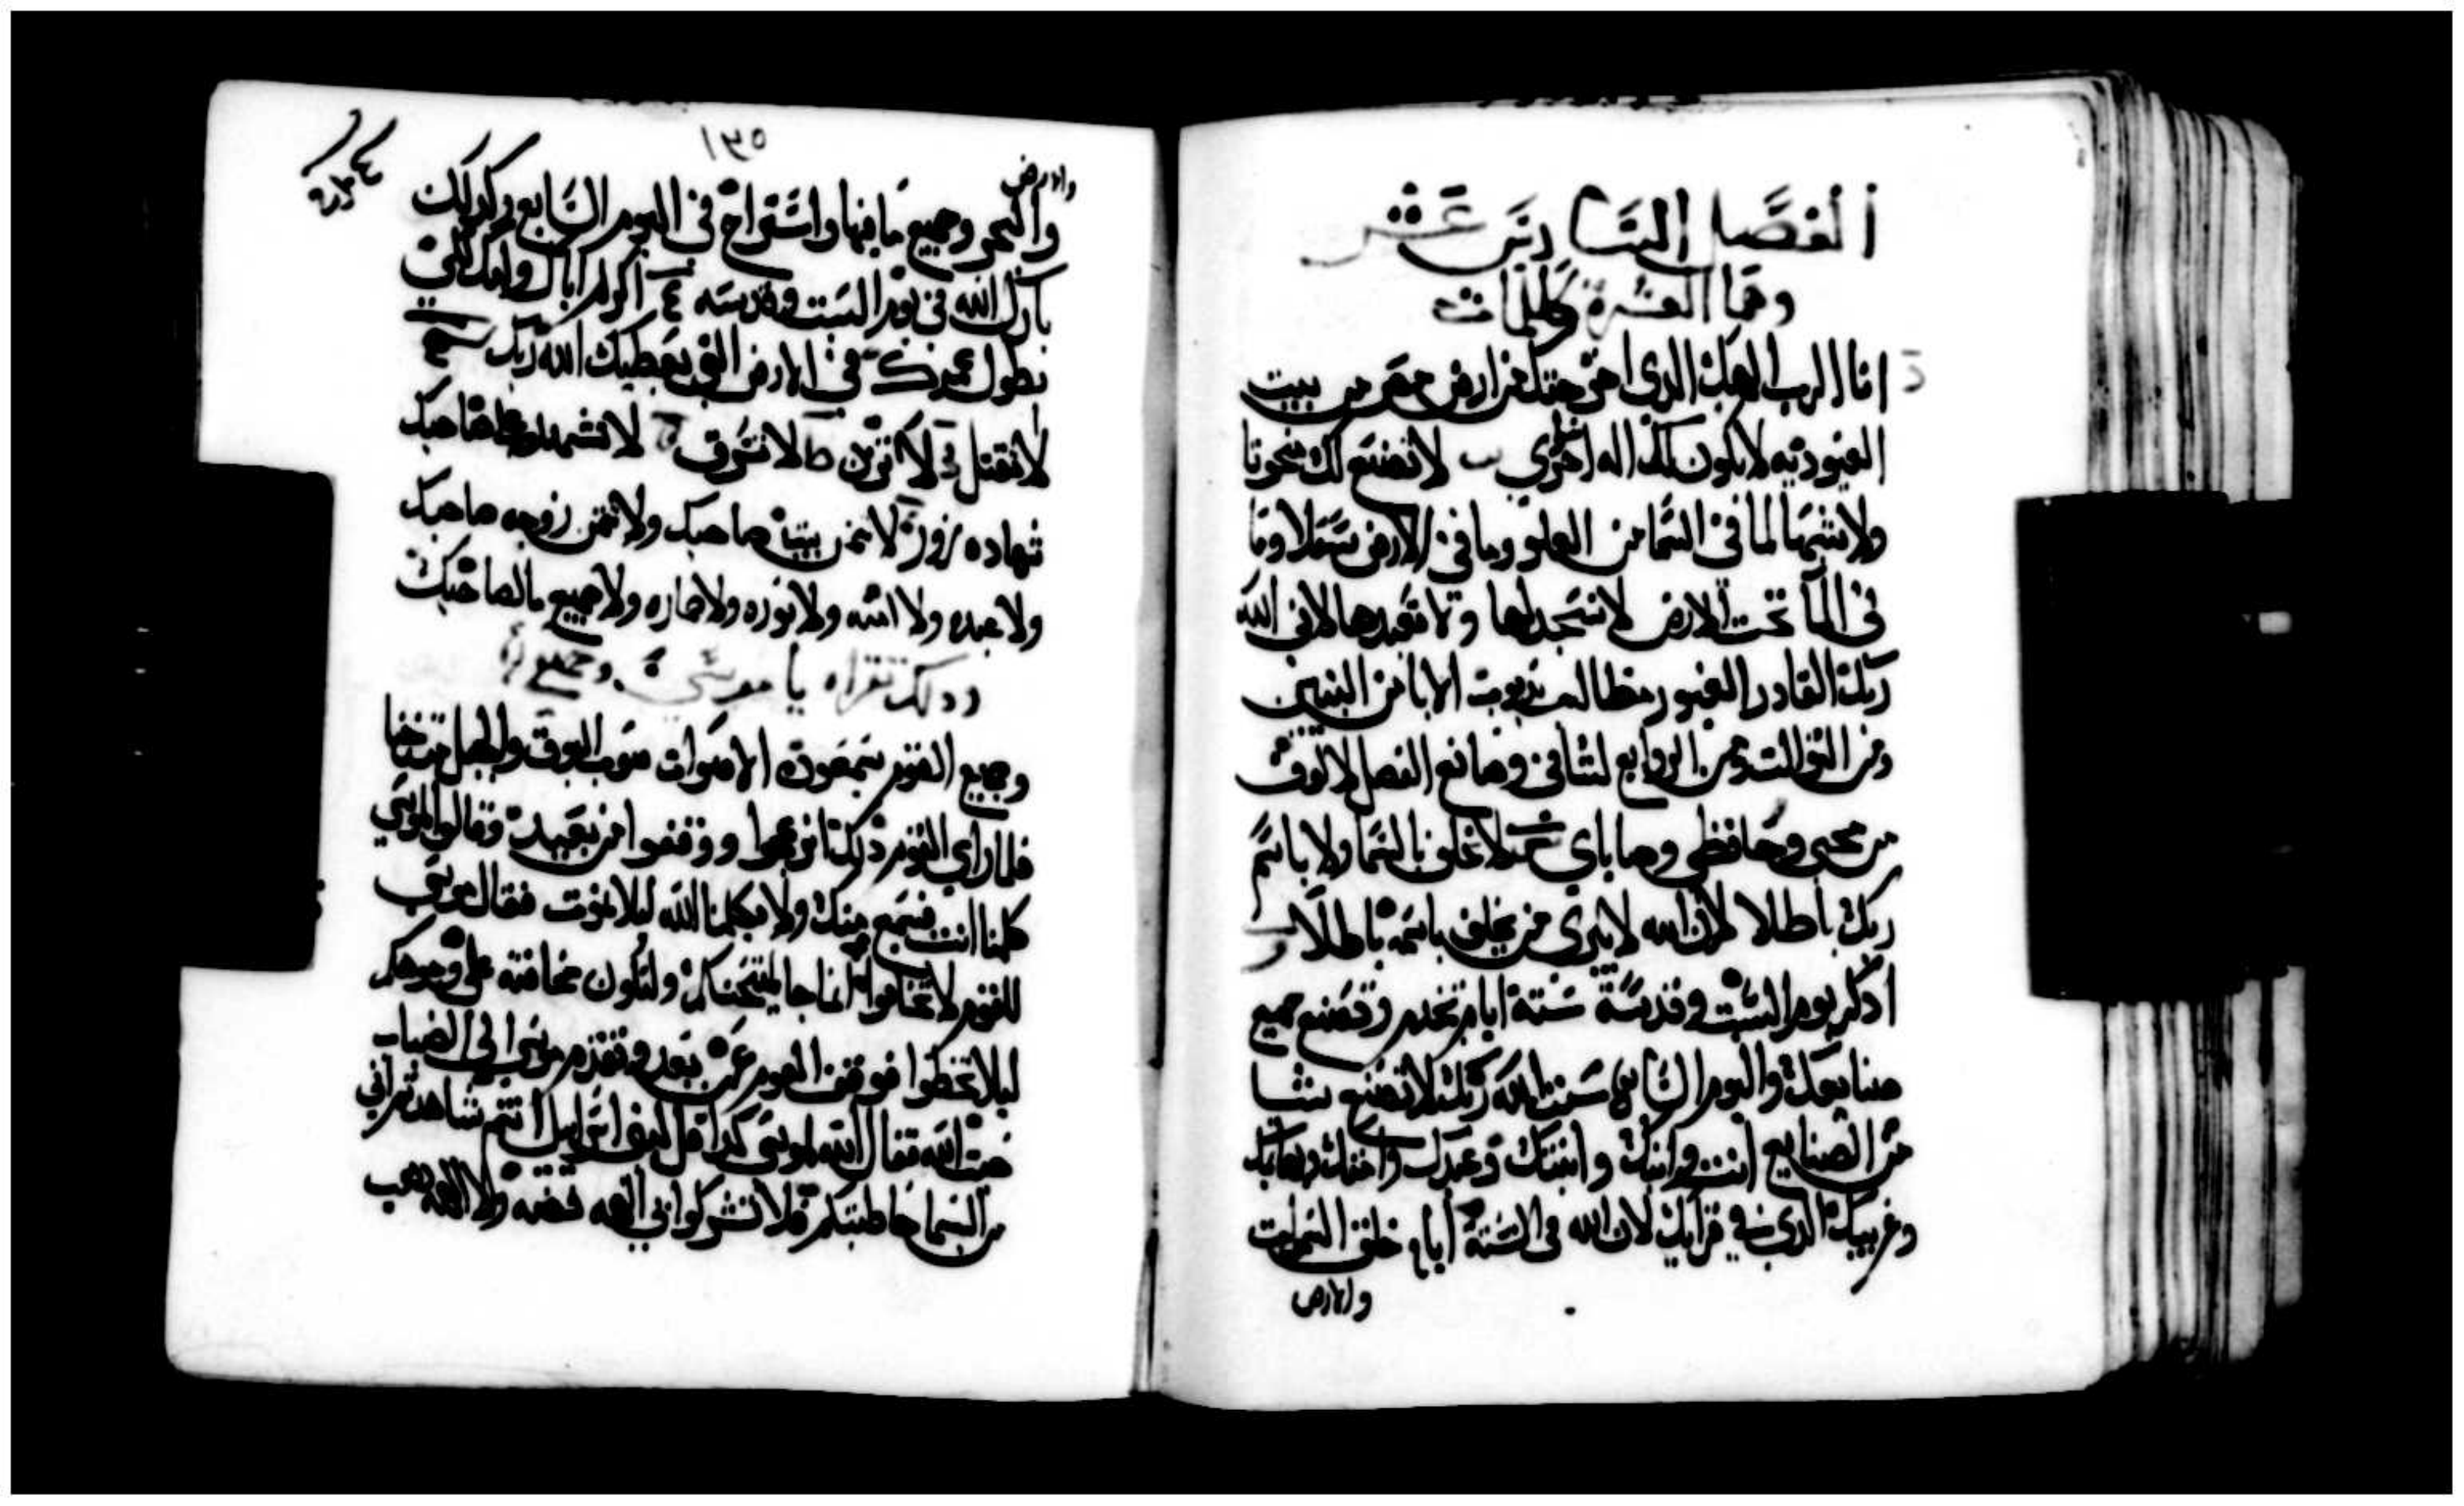 الفصل السادس عشر
وهما العشرة كلمات
انا الرب الهك الدي اخرجتك من ارض مصر من بيت
العبوديه لا يكون لك اله اخري لا تصنع لك منحوتا
ولا شبها لما في السما من العلو وما في الارض سفلا وما
في الما تحت الارض لا تسجد لها ولا تعبدها لاني الله
ربك القادر الغيور مطالب بدنوب الابا من البنين
ومن الثوالث ومن الروابع لشاني وصانع الفضل لالوف
من محبي وحافظي وصاياي لا تحلف بالسما ولا باسم
ربك باطلا لان الله لا يبري من يحلف باسمه باطلا
ادكر يوم السبت وقدسه ستة ايام تخدم وتصنع جميع
صنايعك واليوم السابع سبت لله ربك لا تصنع شيا
من الصنايع انت وابنك وابنتك وعبدك وامتك وبهايمك
وغريبك الدي في قراك لان الله في الستة ايام خلق السموات
والارض
١٣٥
والارض
والبحر وجميع ما فيها واستراح في اليوم السابع وكدلك
بارك الله في يوم السبت وقدسه اكرم اباك وامك لكي
تطول عمرك في الارض التي يعطيك الله ربك
لا تقتل لا تزن لا تسرق لا تشهد على صاحبك
شهاده زور لا تتمن بيت صاحبك ولا تتمن زوجه صاحبك
ولا عبده ولا امته ولا ثوره ولا حماره ولا جميع ما لصاحبك
ودلك تقراه يا موسي
وجميع القوم يسمعون الاصوات صوت البوق والجبل مدخنا
فلما راي القوم دلك انزعجوا ووقفوا من بعيد وقالوا لموسي
كلمنا انت فنسمع منك ولا يكلمنا الله ليلا نموت فقال موسي
للقوم لا تخافوا انما جا ليمتحنكم ولتكون مخافته علي وجوهكم
ليلا تخطوا فوقف القوم من بعد وتقدم موسي الي الضباب
حيث الله فقال الله لموسي كدا قل لبني اسراييل انتم شاهدتم اني
من السما خاطبتكم فلا تشركوا بي الهه فضه ولا الهه دهب